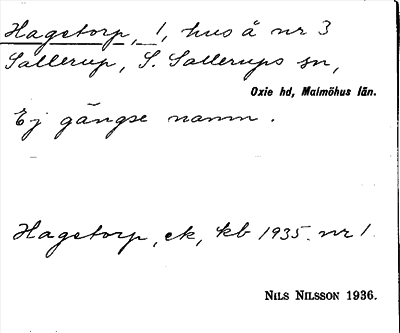 Hagstorp, 1, hus å nr 3
Sallerup, S. Sallerups sn,
Oxie hd, Malmöhus län.
Ej gängse namn.
Hagstorp, ek, kb 1935. nr 1.
NILS NILSSON 1936.